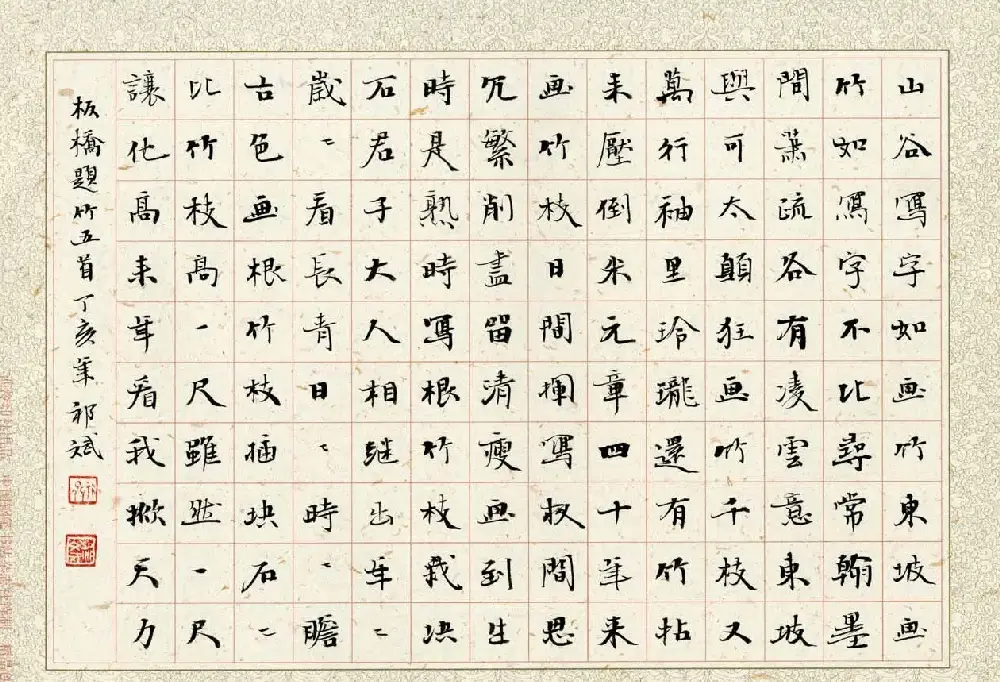 山谷寫字如画竹東坡画
竹如寫字不比尋常翰墨
間蕭疏各有凌雲意東坡
與可太顛狂画竹千枝又
萬行袖里玲瓏還有竹帖
来壓倒米元章四十年来
画竹枝日間揮寫夜間思
冗繁削盡留清瘦画到生
時是熟時寫根竹枝栽块
石君子大人相继出年〻
歲〻看長青日〻時〻瞻
古色画根竹枝插块石〻
比竹枝高一尺雖然一尺
讓他高来年看我掀天力
板橋題竹五首丁亥年祁斌